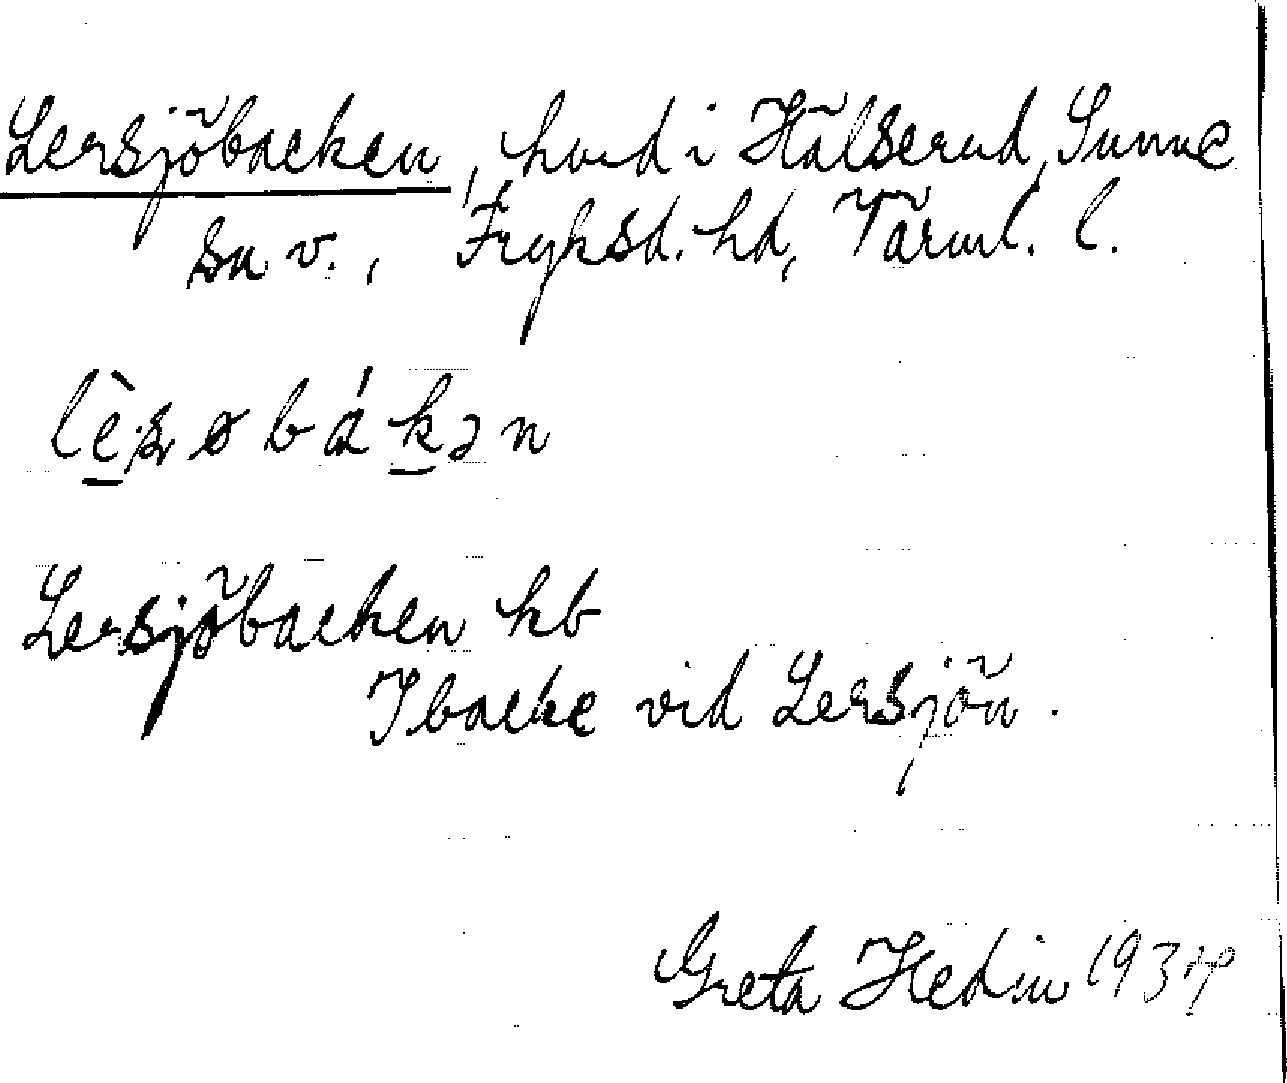 Lersjöbacken, hmd i Hälserud, Sunne
sn v., Fryksd. hd, Värml. l.
lè̱.ʂøbák̠ən
Lersjöbacken hb
I backe vid Lersjön.
Greta Hedin